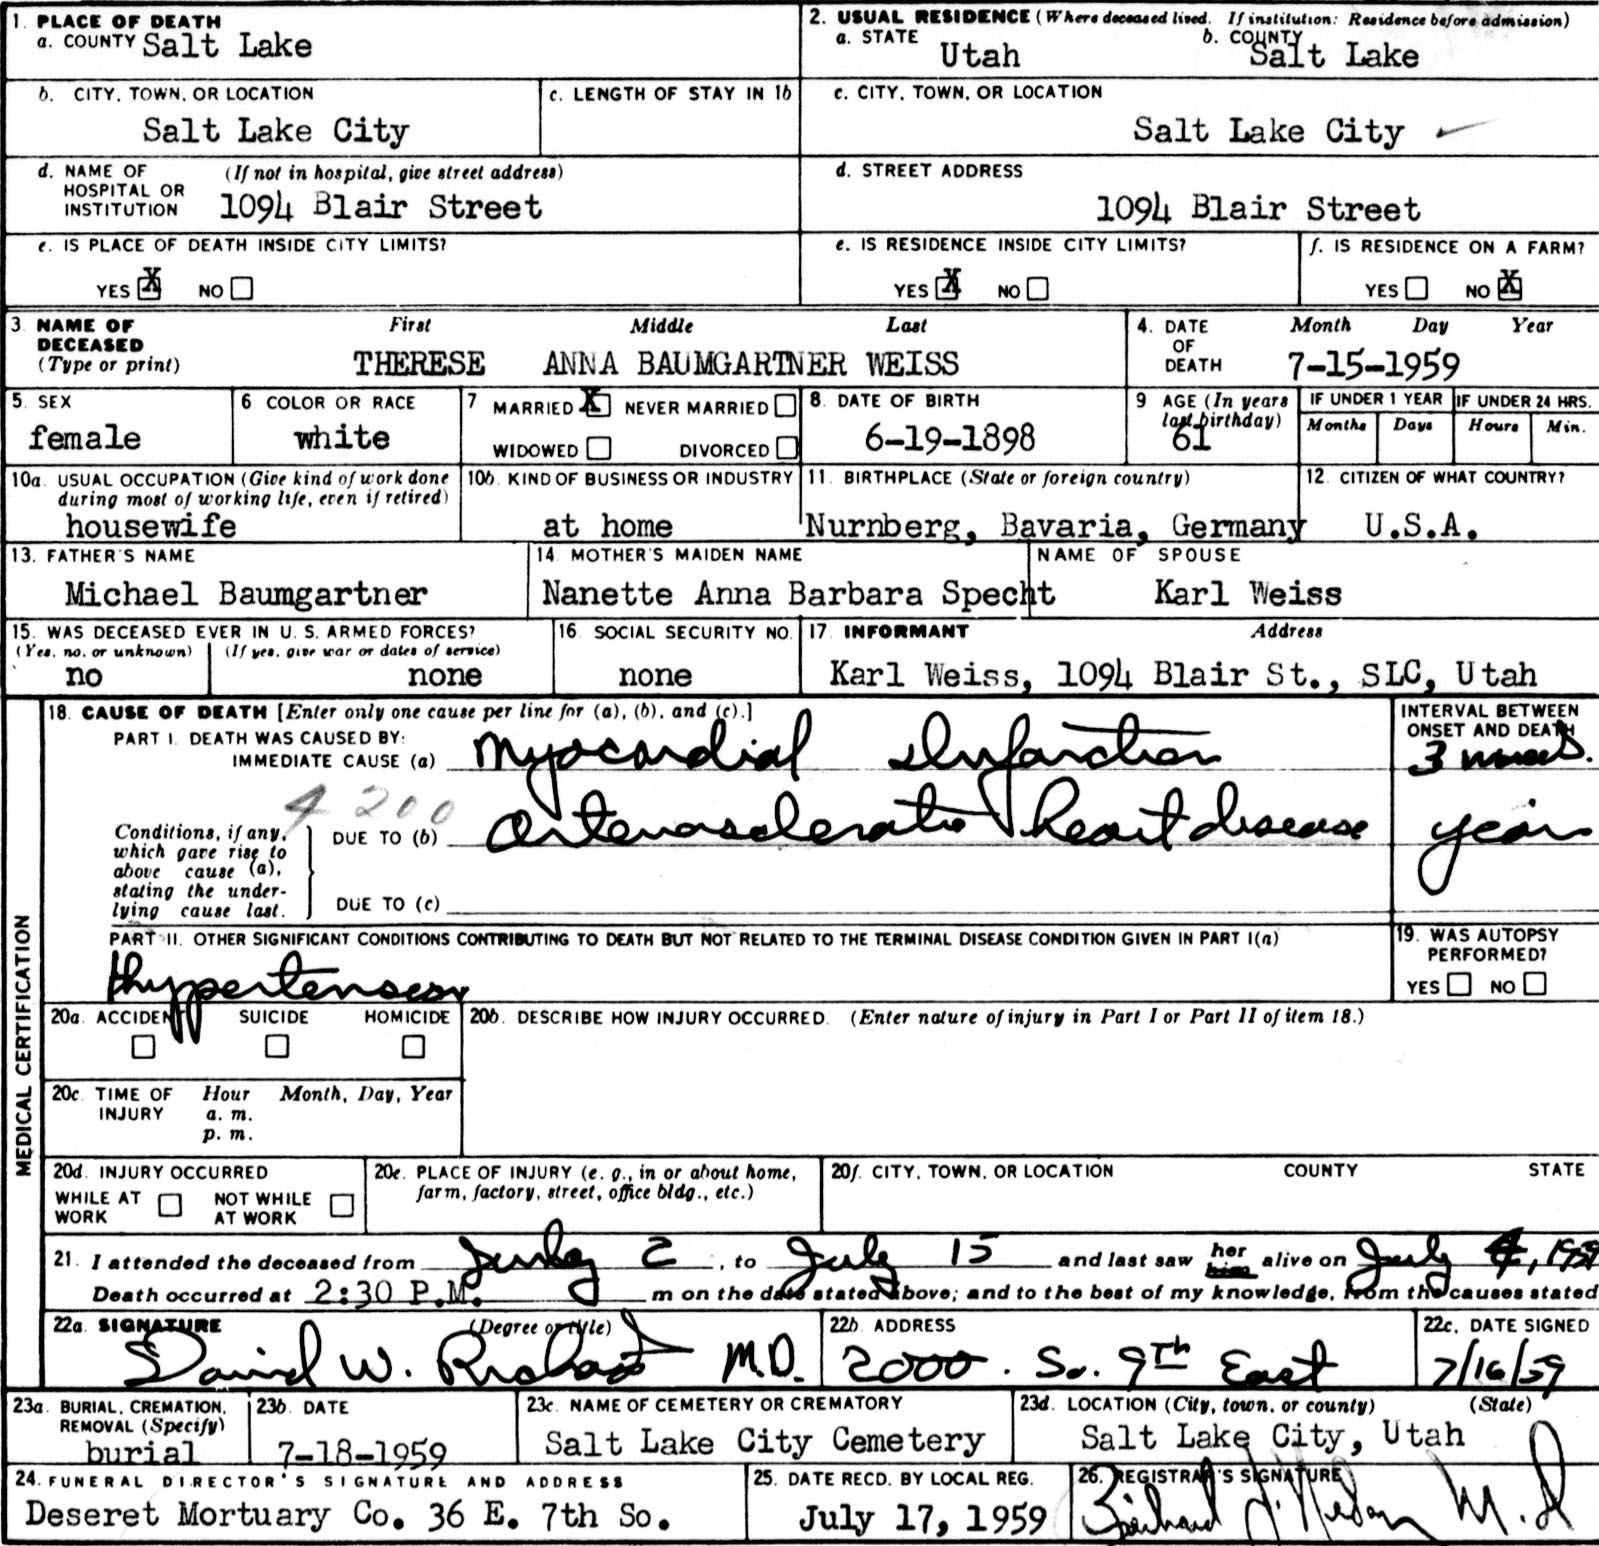 1. PLACE OF DEATH
a. COUNTY Salt Lake
2. USUAL RESIDENCE (Where deceased lived. If institution: Residence before admission)
a. STATE Utah b. COUNTY Salt Lake
b. CITY, TOWN, OR LOCATION
Salt Lake City
c. LENGTH OF STAY IN 1b
c. CITY, TOWN, OR LOCATION
Salt Lake City
d. NAME OF HOSPITAL OR INSTITUTION (If not in hospital, give street address)
1094 Blair Street
d. STREET ADDRESS
1094 Blair Street
e. IS PLACE OF DEATH INSIDE CITY LIMITS?
YES X NO
e. IS RESIDENCE INSIDE CITY LIMITS?
YES X NO
f. IS RESIDENCE ON A FARM?
YES NO X
3. NAME OF DECEASED (Type or print)
First Middle Last
THERESE ANNA BAUMGARTNER WEISS
4. DATE OF DEATH
Month Day Year
7-15-1959
5. SEX
female
6. COLOR OR RACE
white
7 MARRIED X NEVER MARRIED
WIDOWED DIVORCED
8. DATE OF BIRTH
6-19-1898
9 AGE (In years last birthday)
61
IF UNDER 1 YEAR
Months Days
IF UNDER 24 HRS.
Hours Min.
10a. USUAL OCCUPATION (Give kind of work done during most of working life, even if retired)
housewife
10b. KIND OF BUSINESS OR INDUSTRY
at home
11. BIRTHPLACE (State or foreign country)
Nurnberg, Bavaria, Germany
12. CITIZEN OF WHAT COUNTRY?
U.S.A.
13. FATHER'S NAME
Michael Baumgartner
14. MOTHER'S MAIDEN NAME
Nanette Anna Barbara Specht
NAME OF SPOUSE
Karl Weiss
15. WAS DECEASED EVER IN U. S. ARMED FORCES?
(Yes, no, or unknown) (If yes, give war or dates of service)
no none
16. SOCIAL SECURITY NO.
none
17. INFORMANT Address
Karl Weiss, 1094 Blair St., SLC, Utah
MEDICAL CERTIFICATION
18. CAUSE OF DEATH [Enter only one cause per line for (a), (b), and (c).]
PART I. DEATH WAS CAUSED BY:
IMMEDIATE CAUSE (a) Myocardial Infarction
INTERVAL BETWEEN ONSET AND DEATH
3
4200
Conditions, if any, which gave rise to above cause (a), stating the underlying cause last.
DUE TO (b) Arteriosclerotic heart disease
years
DUE TO (c)
PART II. OTHER SIGNIFICANT CONDITIONS CONTRIBUTING TO DEATH BUT NOT RELATED TO THE TERMINAL DISEASE CONDITION GIVEN IN PART I(a)
Hypertension
19. WAS AUTOPSY PERFORMED?
YES NO
20a. ACCIDENT SUICIDE HOMICIDE
20b. DESCRIBE HOW INJURY OCCURRED. (Enter nature of injury in Part I or Part II of item 18.)
20c. TIME OF INJURY Hour Month, Day, Year
a. m.
p. m.
20d. INJURY OCCURRED
WHILE AT WORK NOT WHILE AT WORK
20e. PLACE OF INJURY (e. g., in or about home, farm, factory, street, office bldg., etc.)
20f. CITY, TOWN, OR LOCATION COUNTY STATE
21. I attended the deceased from July 2, to July 15 and last saw her him alive on July 4, 1959
Death occurred at 2:30 P.M. m on the date stated above; and to the best of my knowledge, from the causes stated
22a. SIGNATURE (Degree or title)
David W. M.D.
22b. ADDRESS
2000 So. 9th East
22c. DATE SIGNED
7/16/59
23a. BURIAL, CREMATION, REMOVAL (Specify)
burial
23b. DATE
7-18-1959
23c. NAME OF CEMETERY OR CREMATORY
Salt Lake City Cemetery
23d. LOCATION (City, town, or county) (State)
Salt Lake City, Utah
24. FUNERAL DIRECTOR'S SIGNATURE AND ADDRESS
Deseret Mortuary Co. 36 E. 7th So.
25. DATE RECD. BY LOCAL REG.
July 17, 1959
26. REGISTRAR'S SIGNATURE
M.D